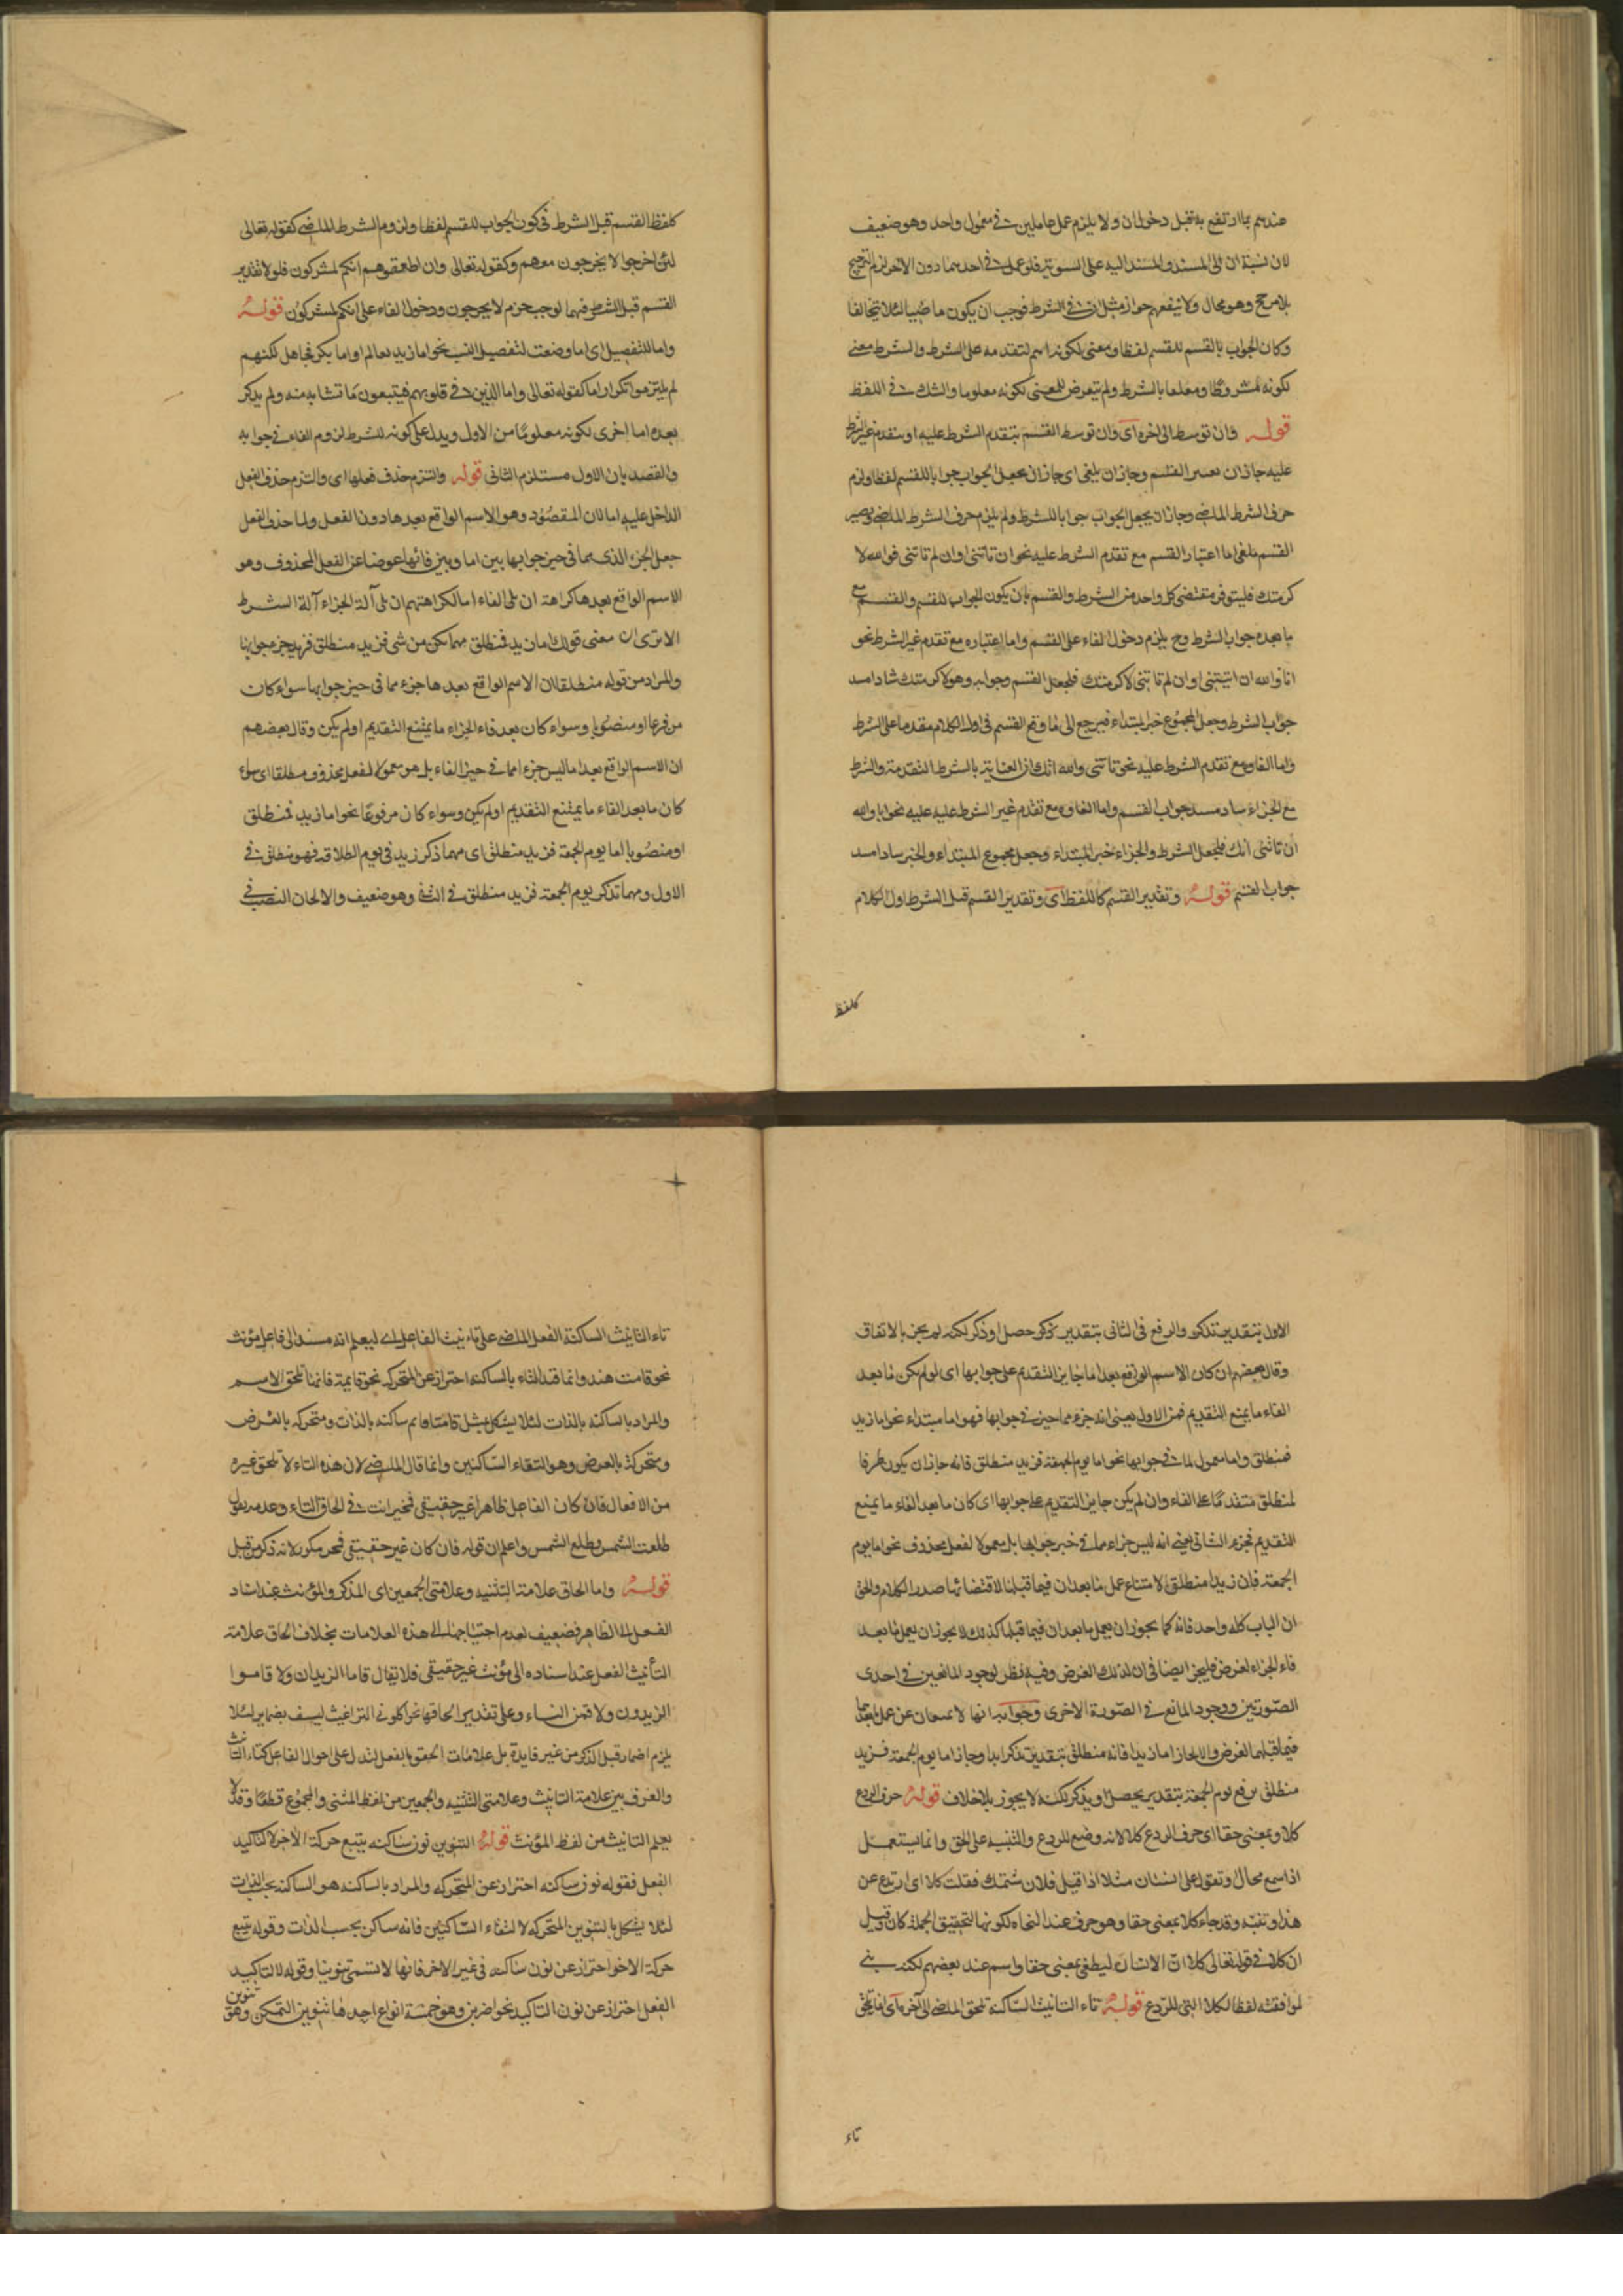 عندهم بما ارتفع به قبل دخول ان ولا يلزم عمل عاملين في معمول واحد وهو ضعيف
لان نسبة ان الى المسند والمسند اليه على السوية فلو عمل في احدهما دون الاخر لزم الترجيح
بلا مرجح وهو محال ولا ينفعهم جواز مثل ان في الشرط فوجب ان يكون ماضيا لئلا يتخالفا
وكان الجواب بالقسم للقسم لفظا ومعنى لكونه اسم لتقدمه على الشرط والشرط معنى
لكونه مشروطا ومعلقا بالشرط ولم يتعرض للمعنى لكونه معلوما والشك في اللفظ
قوله وان توسط الى اخره اى وان توسط القسم بتقدم الشرط عليه او بتقدم غير الشرط
عليه جاز ان يعتبر القسم وجاز ان يلغى اى جاز ان يجعل الجواب جوابا للقسم لفظا ولزم
حرف الشرط الماضى وجاز ان يجعل الجواب جوابا للشرط ولم يلزم حرف الشرط الماضى ويصير
القسم ملغى اما اعتبار القسم مع تقدم الشرط عليه نحو ان تاتنى او ان لم تاتنى فوالله لا
كرمتك فليتوفر مقتضى كل واحد من الشرط والقسم بان يكون الجواب للقسم والقسم مع
ما بعده جواب الشرط وح يلزم دخول الفاء على القسم واما اعتباره مع تقدم غير الشرط نحو
انا والله ان اتيتنى او ان لم تاتنى لاكرمتك فلجعل القسم وجوابه وهو لاكرمتك سادا مسد
جواب الشرط وجعل المجموع خبر المبتداء فيرجع الى ما وقع القسم في اول الكلام مقدما على الشرط
واما الغاوه مع تقدم الشرط عليه نحو تاتنى والله اتك فان العناية بالشرط المتقدمة والشرط
مع الجزاء ساد مسد جواب القسم واما الغاوه مع تقدم غير الشرط عليه عليه نحو انا والله
ان تاتنى اتك فلجعل الشرط والجزاء خبر المبتداء وجعل مجموع المبتداء والخبر سادا مسد
جواب القسم قوله وتقدير القسم كاللفظ اى وتقدير القسم قبل الشرط اول الكلام
كلفظ
كلفظ القسم قبل الشرط في كون الجواب للقسم لفظا ولزوم الشرط الماضى كقوله تعالى
لئن اخرجوا لا يخرجون معهم وكقوله تعالى وان اطعتموهم انكم لمشركون فلولا تقدير
القسم قبل الشرط فيهما لوجب جزم لا يخرجون ودخول الفاء على انكم لمشركون قوله
واما للتفصيل اى اما وضعت لتفصيل النسب نحو اما زيد فعالم او اما بكر فجاهل لكنهم
لم يلتزموا تكرار اما كقوله تعالى واما الذين في قلوبهم فيتبعون ما تشابه منه ولم يذكر
بعده اما اخرى لكونه معلوما من الاول ويدل على كونه للشرط لزوم الفاء في جوابه
والقصد بان الاول مستلزم الثانى قوله والتزم حذف فعلها اى والتزم حذف الفعل
الداخل عليه اما لان المقصود وهو الاسم الواقع بعدها دون الفعل ولما حذف الفعل
جعل الجزء الذى مما في حيز جوابها بين اما وبين فائها عوضا عن الفعل المحذوف وهو
الاسم الواقع بعدها كراهة ان يلى الفاء اما لكراهتهم ان يلى آلة الجزاء آلة الشرط
الا ترى ان معنى قولك اما زيد فمنطلق مهما يكن من شئ فزيد منطلق فزيد جزء جوابها
والمراد من قوله مطلقا ان الاسم الواقع بعدها جزء مما في حيز جوابها سواء كان
مرفوعا او منصوبا وسواء كان بعد فاء الجزاء ما يمتنع التقديم اولم يكن وقال بعضهم
ان الاسم الواقع بعد اما ليس جزء مما في حيز الفاء بل هو معمولا لفعل محذوف مطلقا اى سواء
كان ما بعد الفاء ما يمتنع التقديم اولم يكن وسواء كان مرفوعا نحو اما زيد فمنطلق
او منصوبا اما يوم الجمعة فزيد منطلق اى مهما ذكر زيد في يوم فهو منطلق في
الاول ومهما تذكر يوم الجمعة فزيد منطلق في الثانى وهو ضعيف والا لجاز النصب في
الاول بتقدير تذكر والرفع في الثانى بتقدير ذكر حصل او ذكر لكنه لم يجز بالاتفاق
وقال بعضهم ان كان الاسم الواقع بعد اما جايز التقديم على جوابها اى لو لم يكن ما بعد
الفاء ما يمنع التقديم فمن الاول يعنى انه جزء مما حيز في جوابها فهو اما مبتداء نحو اما زيد
فمنطلق واما معمول لما في جوابها نحو اما يوم الجمعة فزيد منطلق فانه جاز ان يكون ظرفا
لمنطلق متقدما على الفاء وان لم يكن جايز التقديم على جوابها اى كان ما بعد الفاء ما يمنع
التقديم فجزء الثانى يعنى انه ليس جزاء مما في خبر جوابها بل معمولا لفعل محذوف نحو اما يوم
الجمعة فان زيدا منطلق لامتناع عمل ما بعد ان فيما قبلها لاقتضائها صدر الكلام والحق
ان الباب كله واحد فانه كما يجوز ان يعمل ما بعد ان فيما قبلها كذلك لا يجوز ان يعمل ما بعد
فاء الجزاء لغرض فليجز ايضا في ان لذلك الغرض وفيه نظر لوجود المانعين في احدى
الصورتين ووجود المانع في الصورة الاخرى وجوابه انها لا يمنعان عن عمل ما بعدهما
فيما قبلهما لغرض والا لجاز اما زيدا فانه منطلق بتقدير تذكر ابدا وجاز اما يوم الجمعة فزيد
منطلق برفع يوم الجمعة بتقدير يحصل او يذكر لكنه لا يجوز بلا خلاف قوله حرف الردع
كلا وبمعنى حقا اى حرف الردع كلا لانه وضع للردع والتنبيه على الحق وانما يستعمل
اذا سمع محال وتقول على انسان مثلا اذا قيل فلان شتمك فقلت كلا اى ارتدع عن
هذا وتنبه وقد جاء كلا بمعنى حقا وهو حرف عند النحاه لكونها لتحقيق الجملة كان وقيل
ان كلا في قوله تعالى كلا ان الانسان ليطغى بمعنى حقا واسم عند بعضهم لكنه بنى
لموافقته لفظا لكلا التى للردع قوله تاء التانيث الساكنة تلحق الماضى الى آخره اى انما تلحق
تاء
تاء التانيث الساكنة الفعل الماضى على تانيث الفاعل اى ليعلم انه مسند الى فاعل مؤنث
نحو قامت هند وانما قيد التاء بالساكنه احتراز عن المتحركه نحو قايمة فانها تلحق الاسم
والمراد بالساكنه بالذات لئلا يشكل بمثل قامتا فانه ساكنه بالذات ومتحركه بالعرض
ومتحركة بالعرض وهو التقاء الساكنين وانما قال الماضى لان هذه التاء لا تلحق غيره
من الافعال فان كان الفاعل ظاهرا غير حقيقى فمخير انت في الحاق التاء وعدمه تقول
طلعت الشمس وطلع الشمس واعلم ان قوله فان كان غير حقيقى فمخير مكرر لانه ذكر من قبل
قوله واما الحاق علامة التثنيه وعلامتى الجمعين اى المذكر والمؤنث عند اسناد
الفعل الى الظاهر فضعيف لعدم احتياجها الى هذه العلامات بخلاف الحاق علامة
التأنيث الفعل عند اسناده الى مؤنث غير حقيقى فلا تقال قاما الزيدان ولا قاموا
الزيدون ولا قمن النساء وعلى تقدير الحاقها نحو اكلونى البراغيث ليست بضماير لئلا
يلزم اضمار قبل الذكر من غير فايدة بل علامات الحقوها بالفعل لتدل على احوال الفاعل كتاء التانيث
والفرق بين علامة التانيث وعلامتى التثنيه والجمعين من لفظ المثنى والمجموع قطعا وقد لا
يعلم التانيث من لفظ المؤنث قوله التنوين نون ساكنه يتبع حركة الآخر لا لتاكيد
الفعل فقوله نون ساكنه احتراز عن المتحركه والمراد بالساكنه هو الساكنه بحسب الذات
لئلا يشكل بالتنوين المتحركه لالتقاء الساكنين فانه ساكن بحسب الذات وقوله يتبع
حركة الاخر احتراز عن نون ساكنه في غير الاخر فانها لا تسمى تنوينا وقوله لا لتاكيد
الفعل احتراز عن نون التاكيد نحو اضربن وهو خمسة انواع احدها تنوين التمكن وهو تنوين